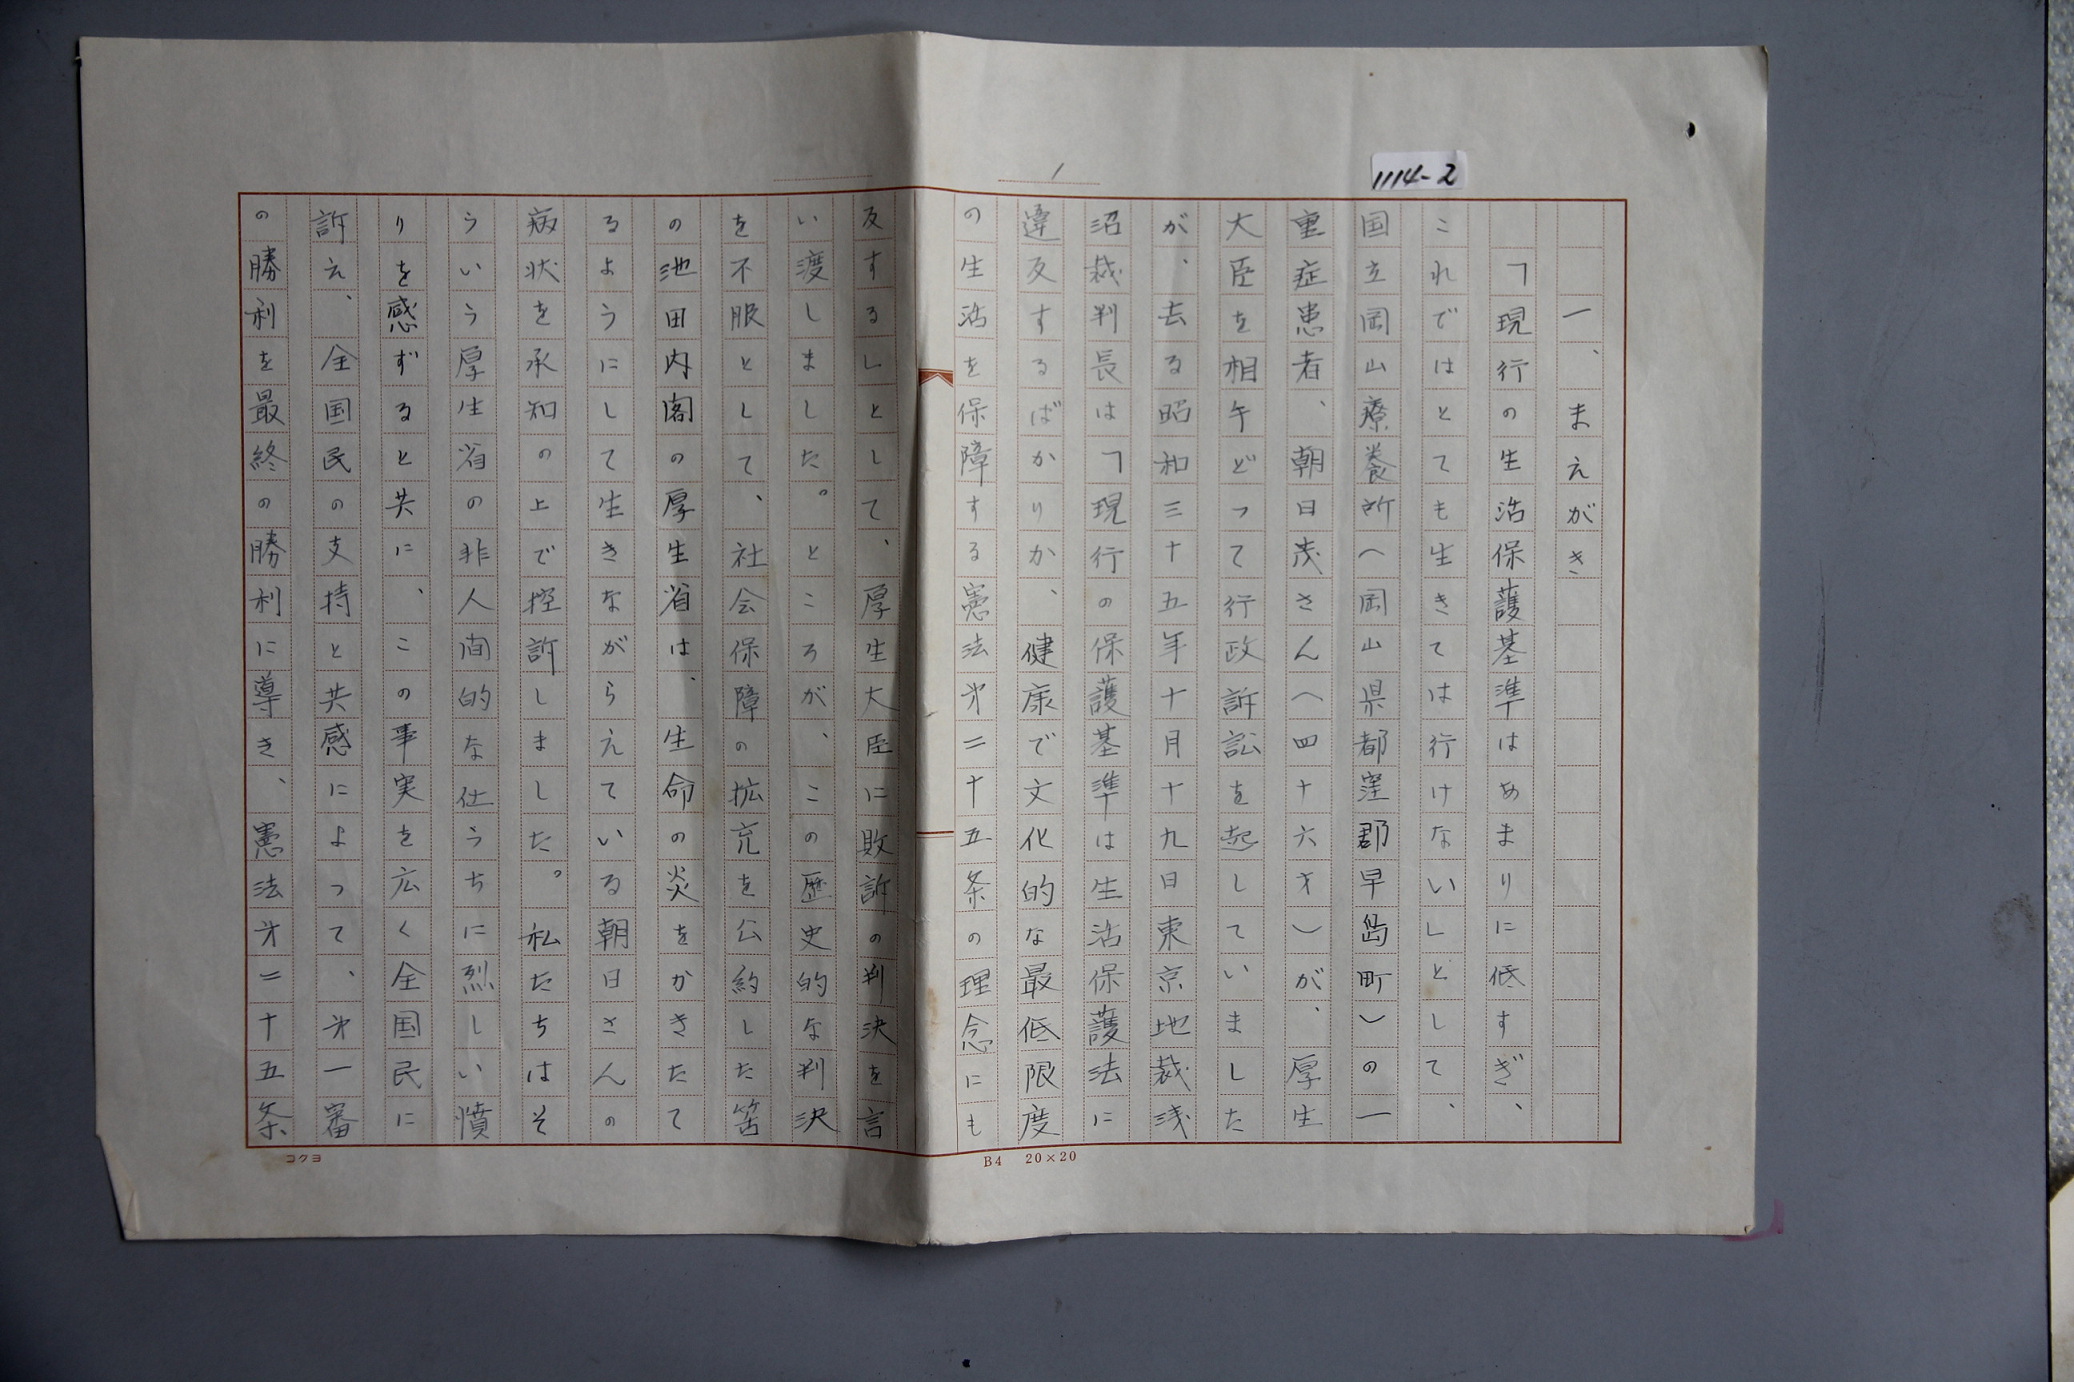 1114-2
1
一、まえがき
「現行の生活保護基準はあまりに低すぎ、
これではとても生きては行けない」として、
国立岡山療養所(岡山県都窪郡早島町)の一
重症患者、朝日茂さん(四十六才)が、厚生
大臣を相午どって行政訴訟を起していました
が、去る昭和三十五年十月十九日東京地裁浅
沼裁判長は「現行の保護基準は生活保護法に
違反するばかりか、健康で文化的な最低限度
の生活を保障する憲法㐧二十五条の理念にも
反する」として、厚生大臣に敗訴の判決を言
い渡しました。ところが、この歴史的な判決
を不服として、社会保障の拡充を公約した筈
の池田内閣の厚生省は、生命の炎をかきたて
るようにして生きながらえている朝日さんの
病状を承知の上で控訴しました。私たちはそ
ういう厚生省の非人間的な仕うちに烈しい憤
りを感ずると共に、この事実を広く全国民に
訴え、全国民の支持と共感によって、㐧一審
の勝利を最終の勝利に導き、憲法㐧二十五条
コクヨ
B4 20×20